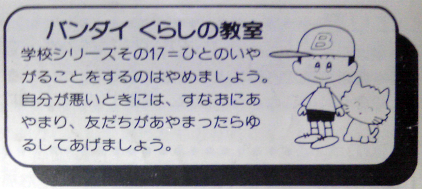 バンダイ くらしの教室
学校シリーズその17=ひとのいや
がることをするのはやめましょう。
自分が悪いときには、すなおにあ
やまり、友だちがあやまったらゆ
るしてあげましょう。
B